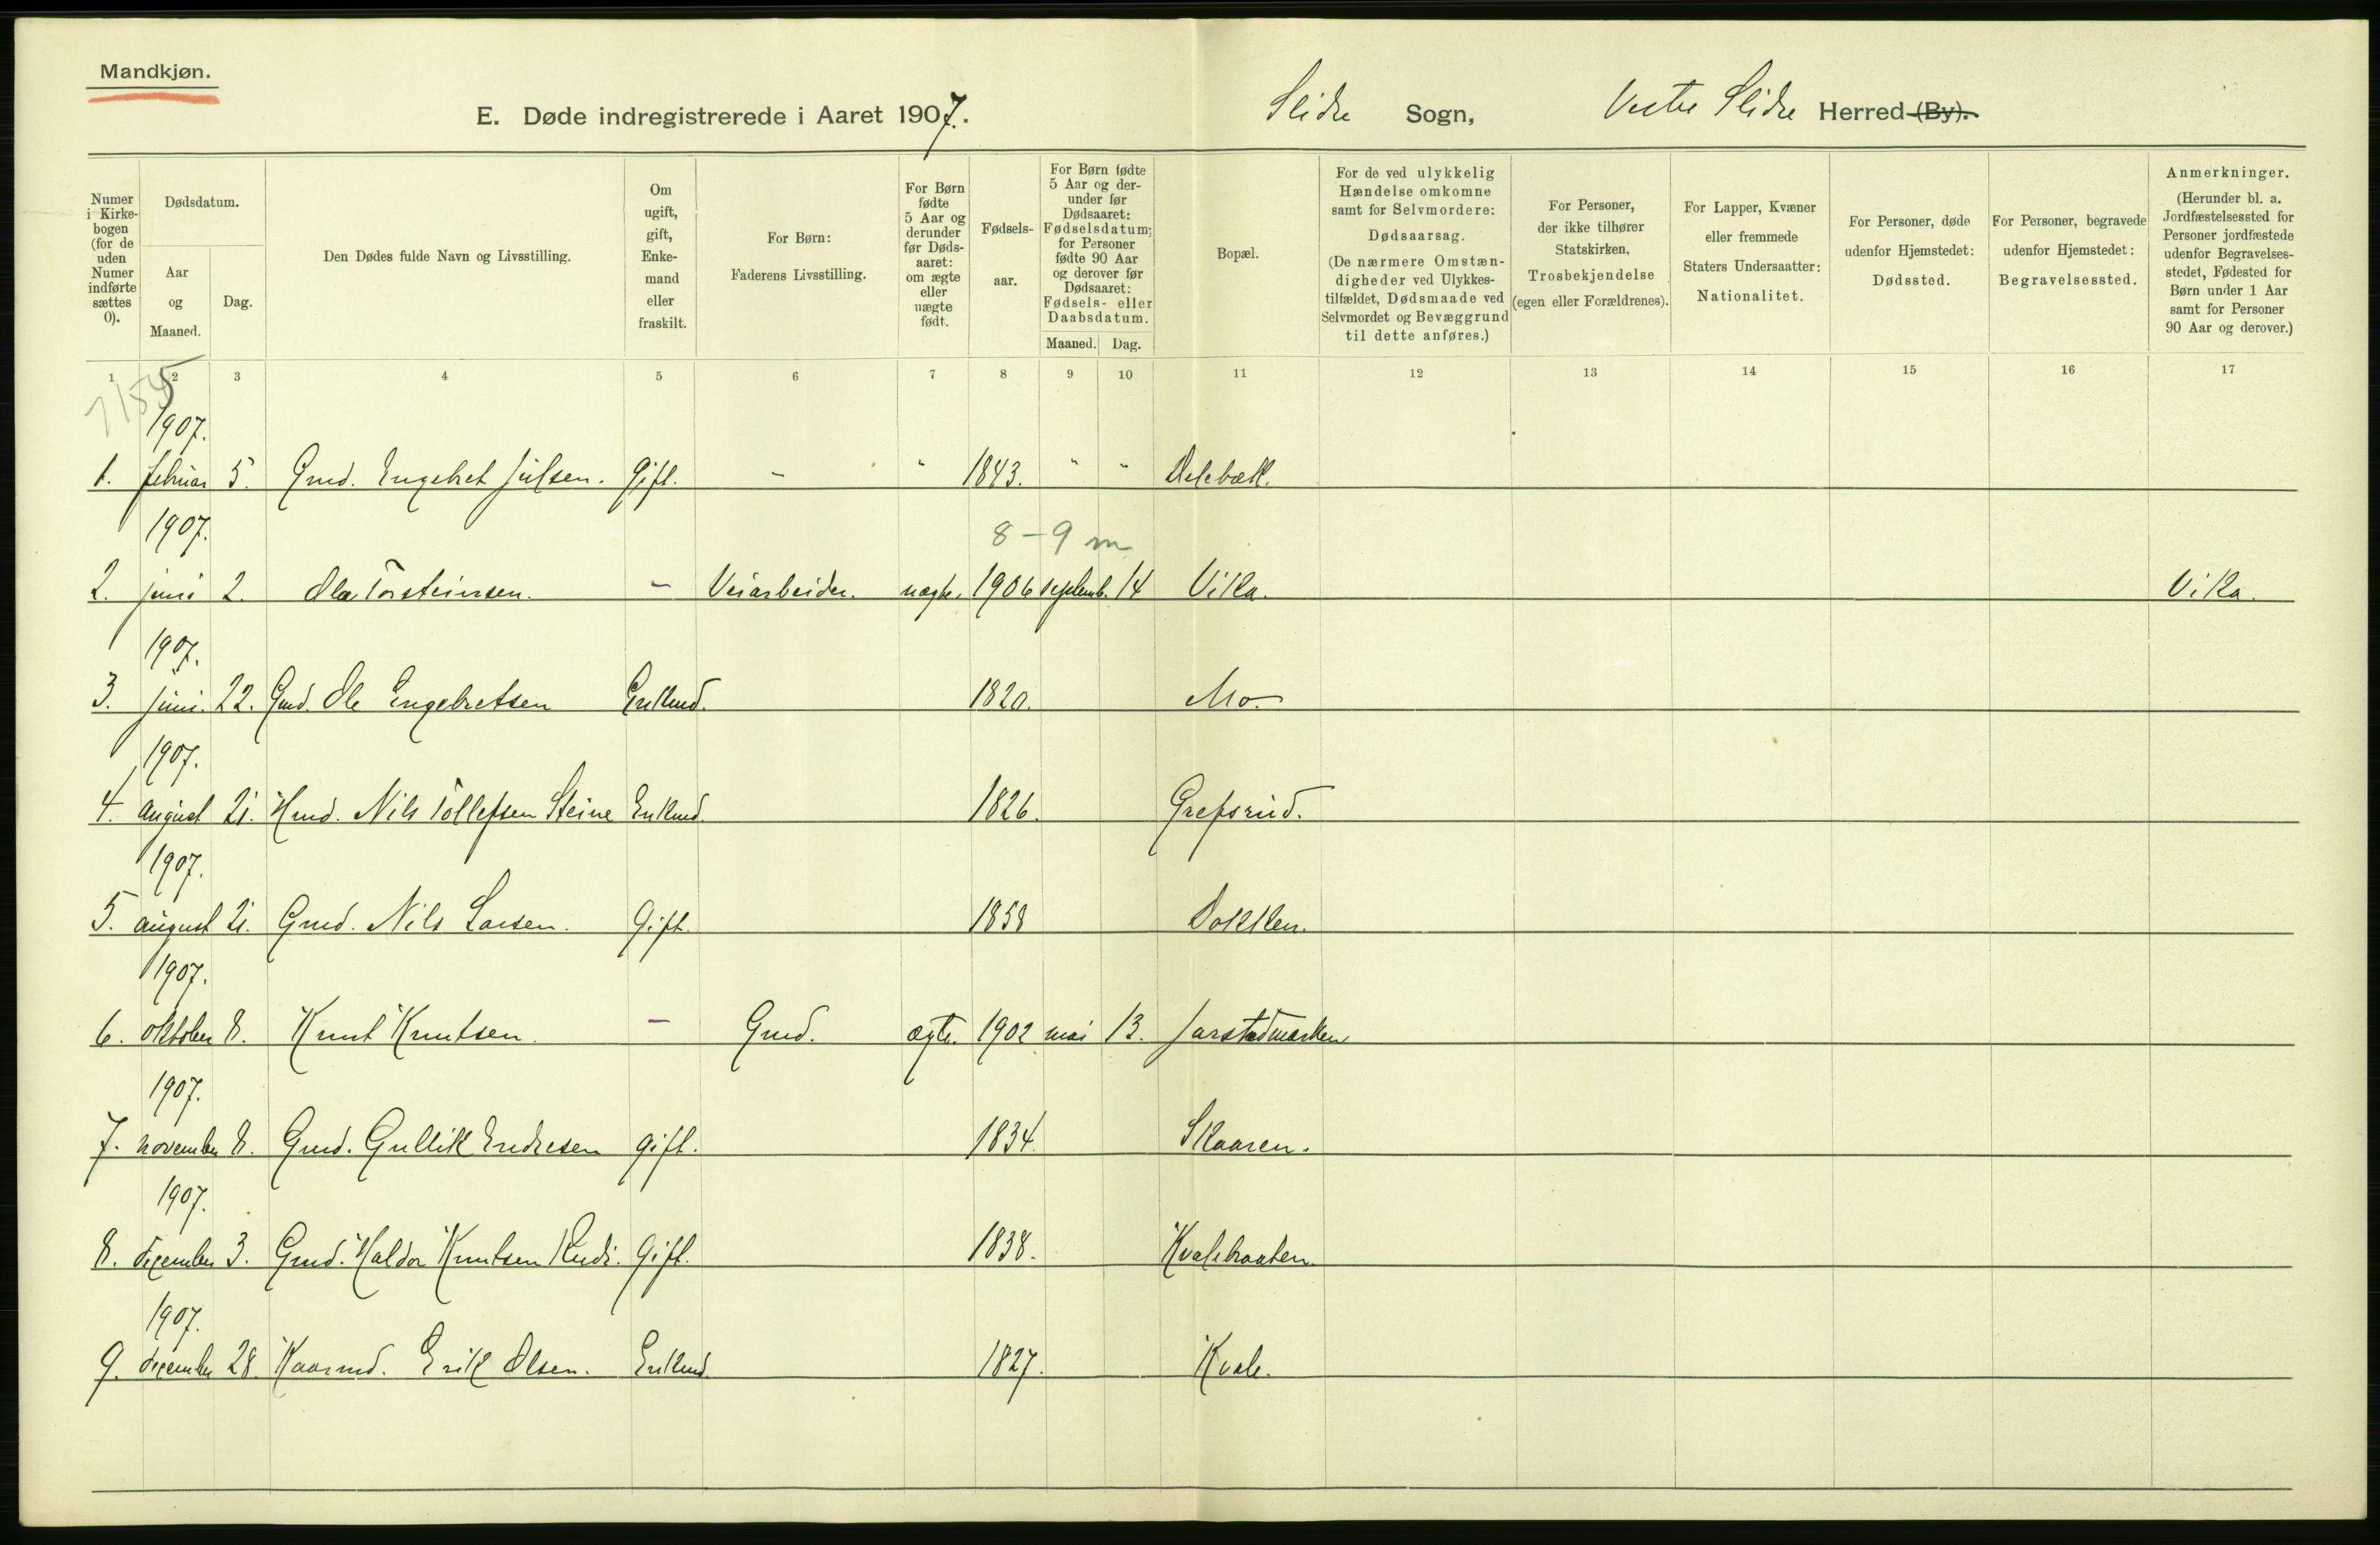 Mandkjøn.
E. Døde indregistrerede i Aaret 1907. Slidre Sogn, Vestre Slidre Herred (By).
Numer i Kirkebogen (for de uden Numer indførte sættes 0).
Dødsdatum.
Aar og Maaned.
Dag.
Den Dødes fulde Navn og Livsstilling.
Om ugift, gift, Enkemand eller fraskilt.
For Børn:
Faderens Livsstilling.
For Børn fødte 5 Aar og derunder før Dødsaaret: om ægte eller uægte født.
Fødselsaar.
For Børn fødte 5 Aar og derunder før Dødsaaret: Fødselsdatum; for Personer fødte 90 Aar og derover før Dødsaaret: Fødsels- eller Daabsdatum.
Maaned. Dag.
Bopæl.
For de ved ulykkelig Hændelse omkomne samt for Selvmordere: Dødsaarsag. (De nærmere Omstændigheder ved Ulykkestilfældet, Dødsmaade ved Selvmordet og Bevæggrund til dette anføres.)
For Personer, der ikke tilhører Statskirken, Trosbekjendelse (egen eller Forældrenes).
For Lapper, Kvæner eller fremmede Staters Undersaatter: Nationalitet.
For Personer, døde udenfor Hjemstedet: Dødssted.
For Personer, begravede udenfor Hjemstedet: Begravelsessted.
Anmerkninger. (Herunder bl. a. Jordfæstelsessted for Personer jordfæstede udenfor Begravelsesstedet, Fødested for Børn under 1 Aar samt for Personer 90 Aar og derover.)
1 2 3 4 5 6 7 8 9 10 11 12 13 14 15 16 17
1907.
1. februar 5. Gmd. Engebret Julsen. Gift. - " 1843. " "
1907.
8-9 m
2. juni 2. Ola Torsteinsen. - Veiarbeider. uægte. 1906 septemb. 14 Vika. Vika.
1907.
3. juni. 22. Gmd. Ole Engebretsen Enkmd. 1820. Mo.
1907.
4. august 21. Hmd. Nils Tollefsen Steine Enkmd. 1826. Grefsrud.
1907.
5. august 21. Gmd. Nils Larsen. Gift. 1858 Dokken.
1907.
6. oktober 8. Knut Knutsen. - Gmd. ægte. 1902 mai 13. Jarstadmarken
1907.
7. november 8. Gmd. Gullik Endresen gift. 1834. Skaaren.
1907.
8. december 3. Gmd. Haldor Knutsen Rudi. Gift. 1838. Kvalebraaten.
1907.
9. december 28. Kaarmd. Erik Olsen. Enkmd. 1827. Kvale.